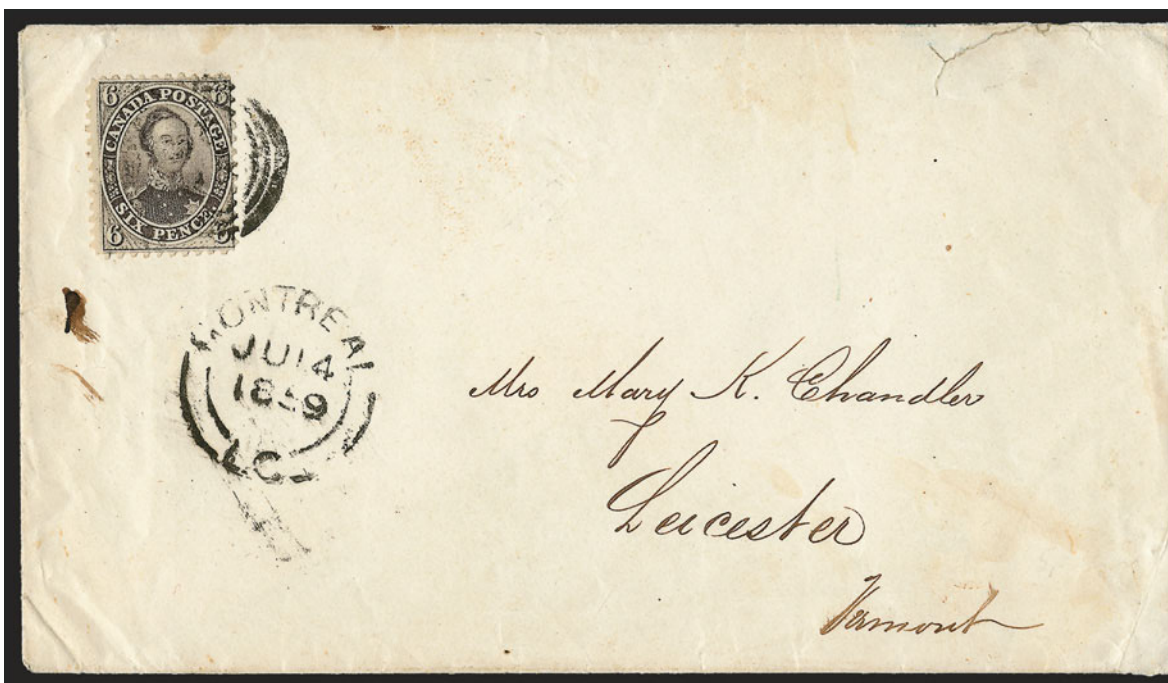 6 6
CANADA POSTAGE
SIX PENCE.
6 6
MONTREAL
JU 14
1859
L.C.
Mrs Mary K. Chandler
Leicester
Vermont